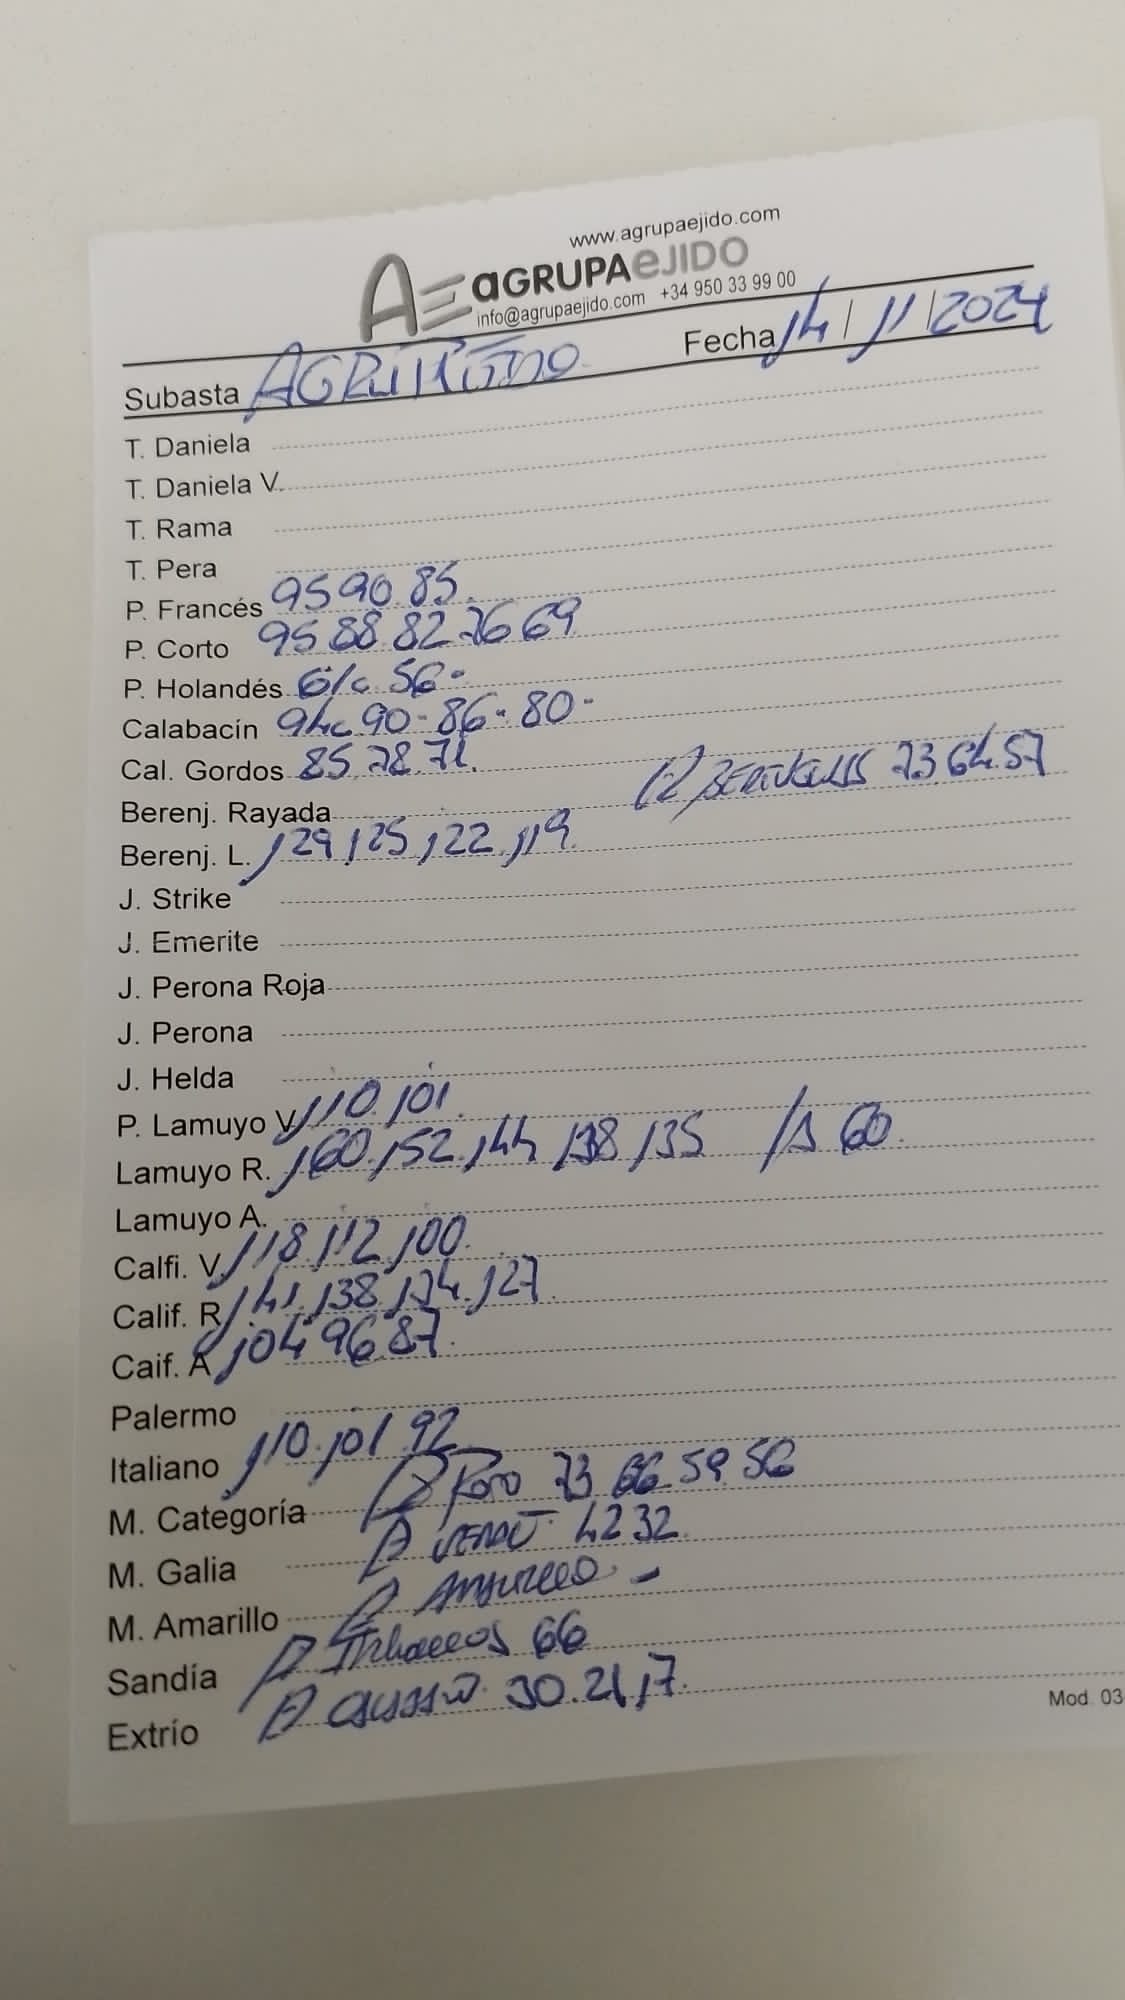 www.agrupaejido.com
AE aGRUPAeJIDO
info@agrupaejido.com +34 950 33 99 00
Subasta AGRUPAEJIDO Fecha 14/11/2024
T. Daniela
T. Daniela V.
T. Rama
T. Pera
P. Francés 95 90. 85.
P. Corto 95 88 82 76 69
P. Holandés 61c 56-
Calabacín 94c 90-86-80-
Cal. Gordos 85 78. 71.
Berenj. Rayada (D) BERENJENAS 73 64.57
Berenj. L. 129 125 122. 119.
J. Strike
J. Emerite
J. Perona Roja
J. Perona
J. Helda
P. Lamuyo V. 110. 101.
Lamuyo R. 160. 152. 144 138 135 60.
Lamuyo A.
Calfi. V. 118 112 100.
Calif. R 141. 138. 134. 127.
Caif. A 104 96 87.
Palermo
Italiano 110. 101. 92
M. Categoría D Rojo 73 66. 59. 56
M. Galia D VERDE 42 32.
M. Amarillo D AMARILLO -
Sandía D ITALIANOS 66
Extrío D 30. 21 17.
Mod. 03